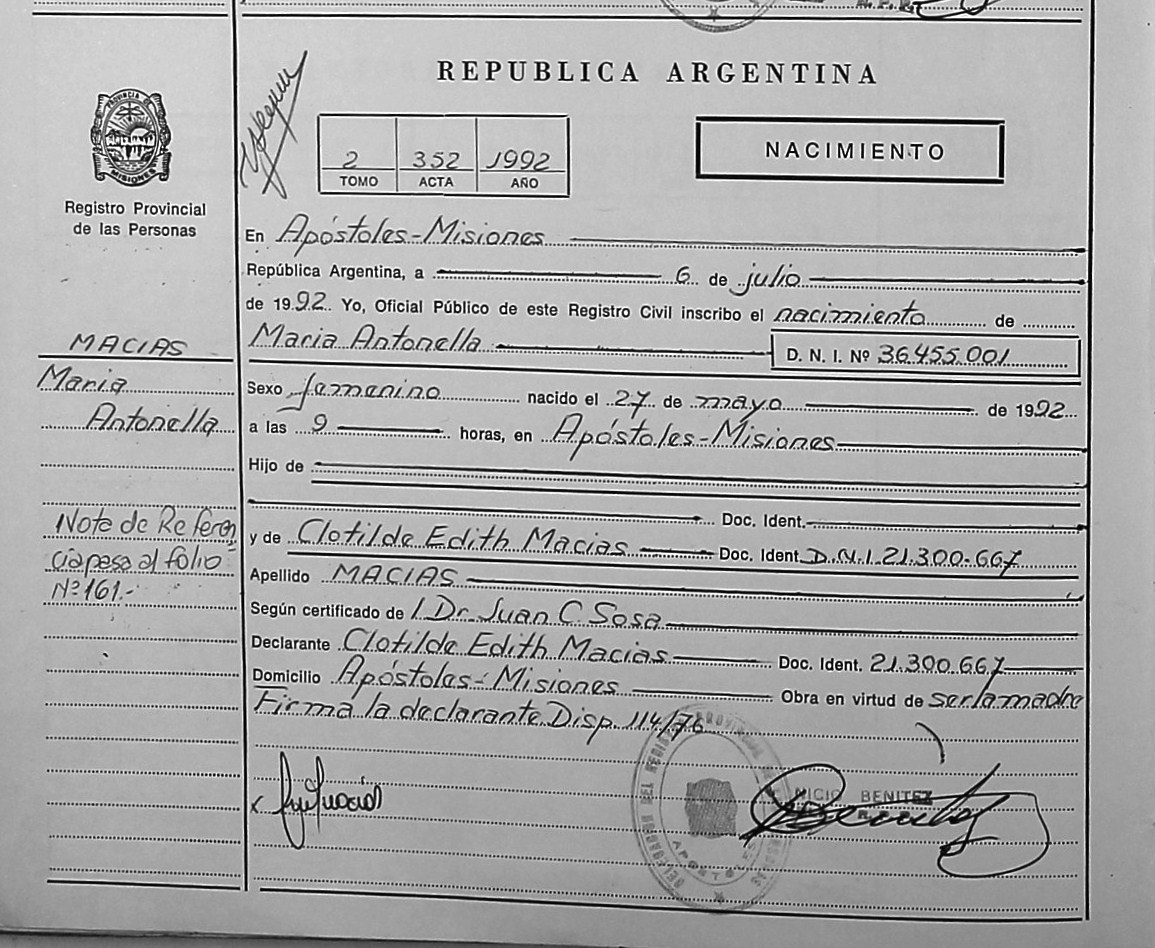 REPUBLICA ARGENTINA
PROVINCIA DE
MISIONES
Registro Provincial
de las Personas
2 352 1992
TOMO ACTA AÑO
NACIMIENTO
En Apóstoles-Misiones
República Argentina, a 6 de julio
de 1992 Yo, Oficial Público de este Registro Civil inscribo el nacimiento de
Maria Antonella D. N. I. Nº 36.455.001
Sexo femenino nacido el 27 de mayo de 1992
a las 9 horas, en Apóstoles-Misiones
Hijo de
Doc. Ident.
y de Clotilde Edith Macias Doc. Ident. D.N.I. 21.300.667
Apellido MACIAS
Según certificado de l Dr. Juan C. Sosa
Declarante Clotilde Edith Macias Doc. Ident. 21.300.667
Domicilio Apóstoles-Misiones Obra en virtud de ser la madre
Firma la declarante. Disp. 114/76
MACIAS
Maria
Antonella
Nota de Referen
cia pasa al folio
Nº 161.-
BENITEZ